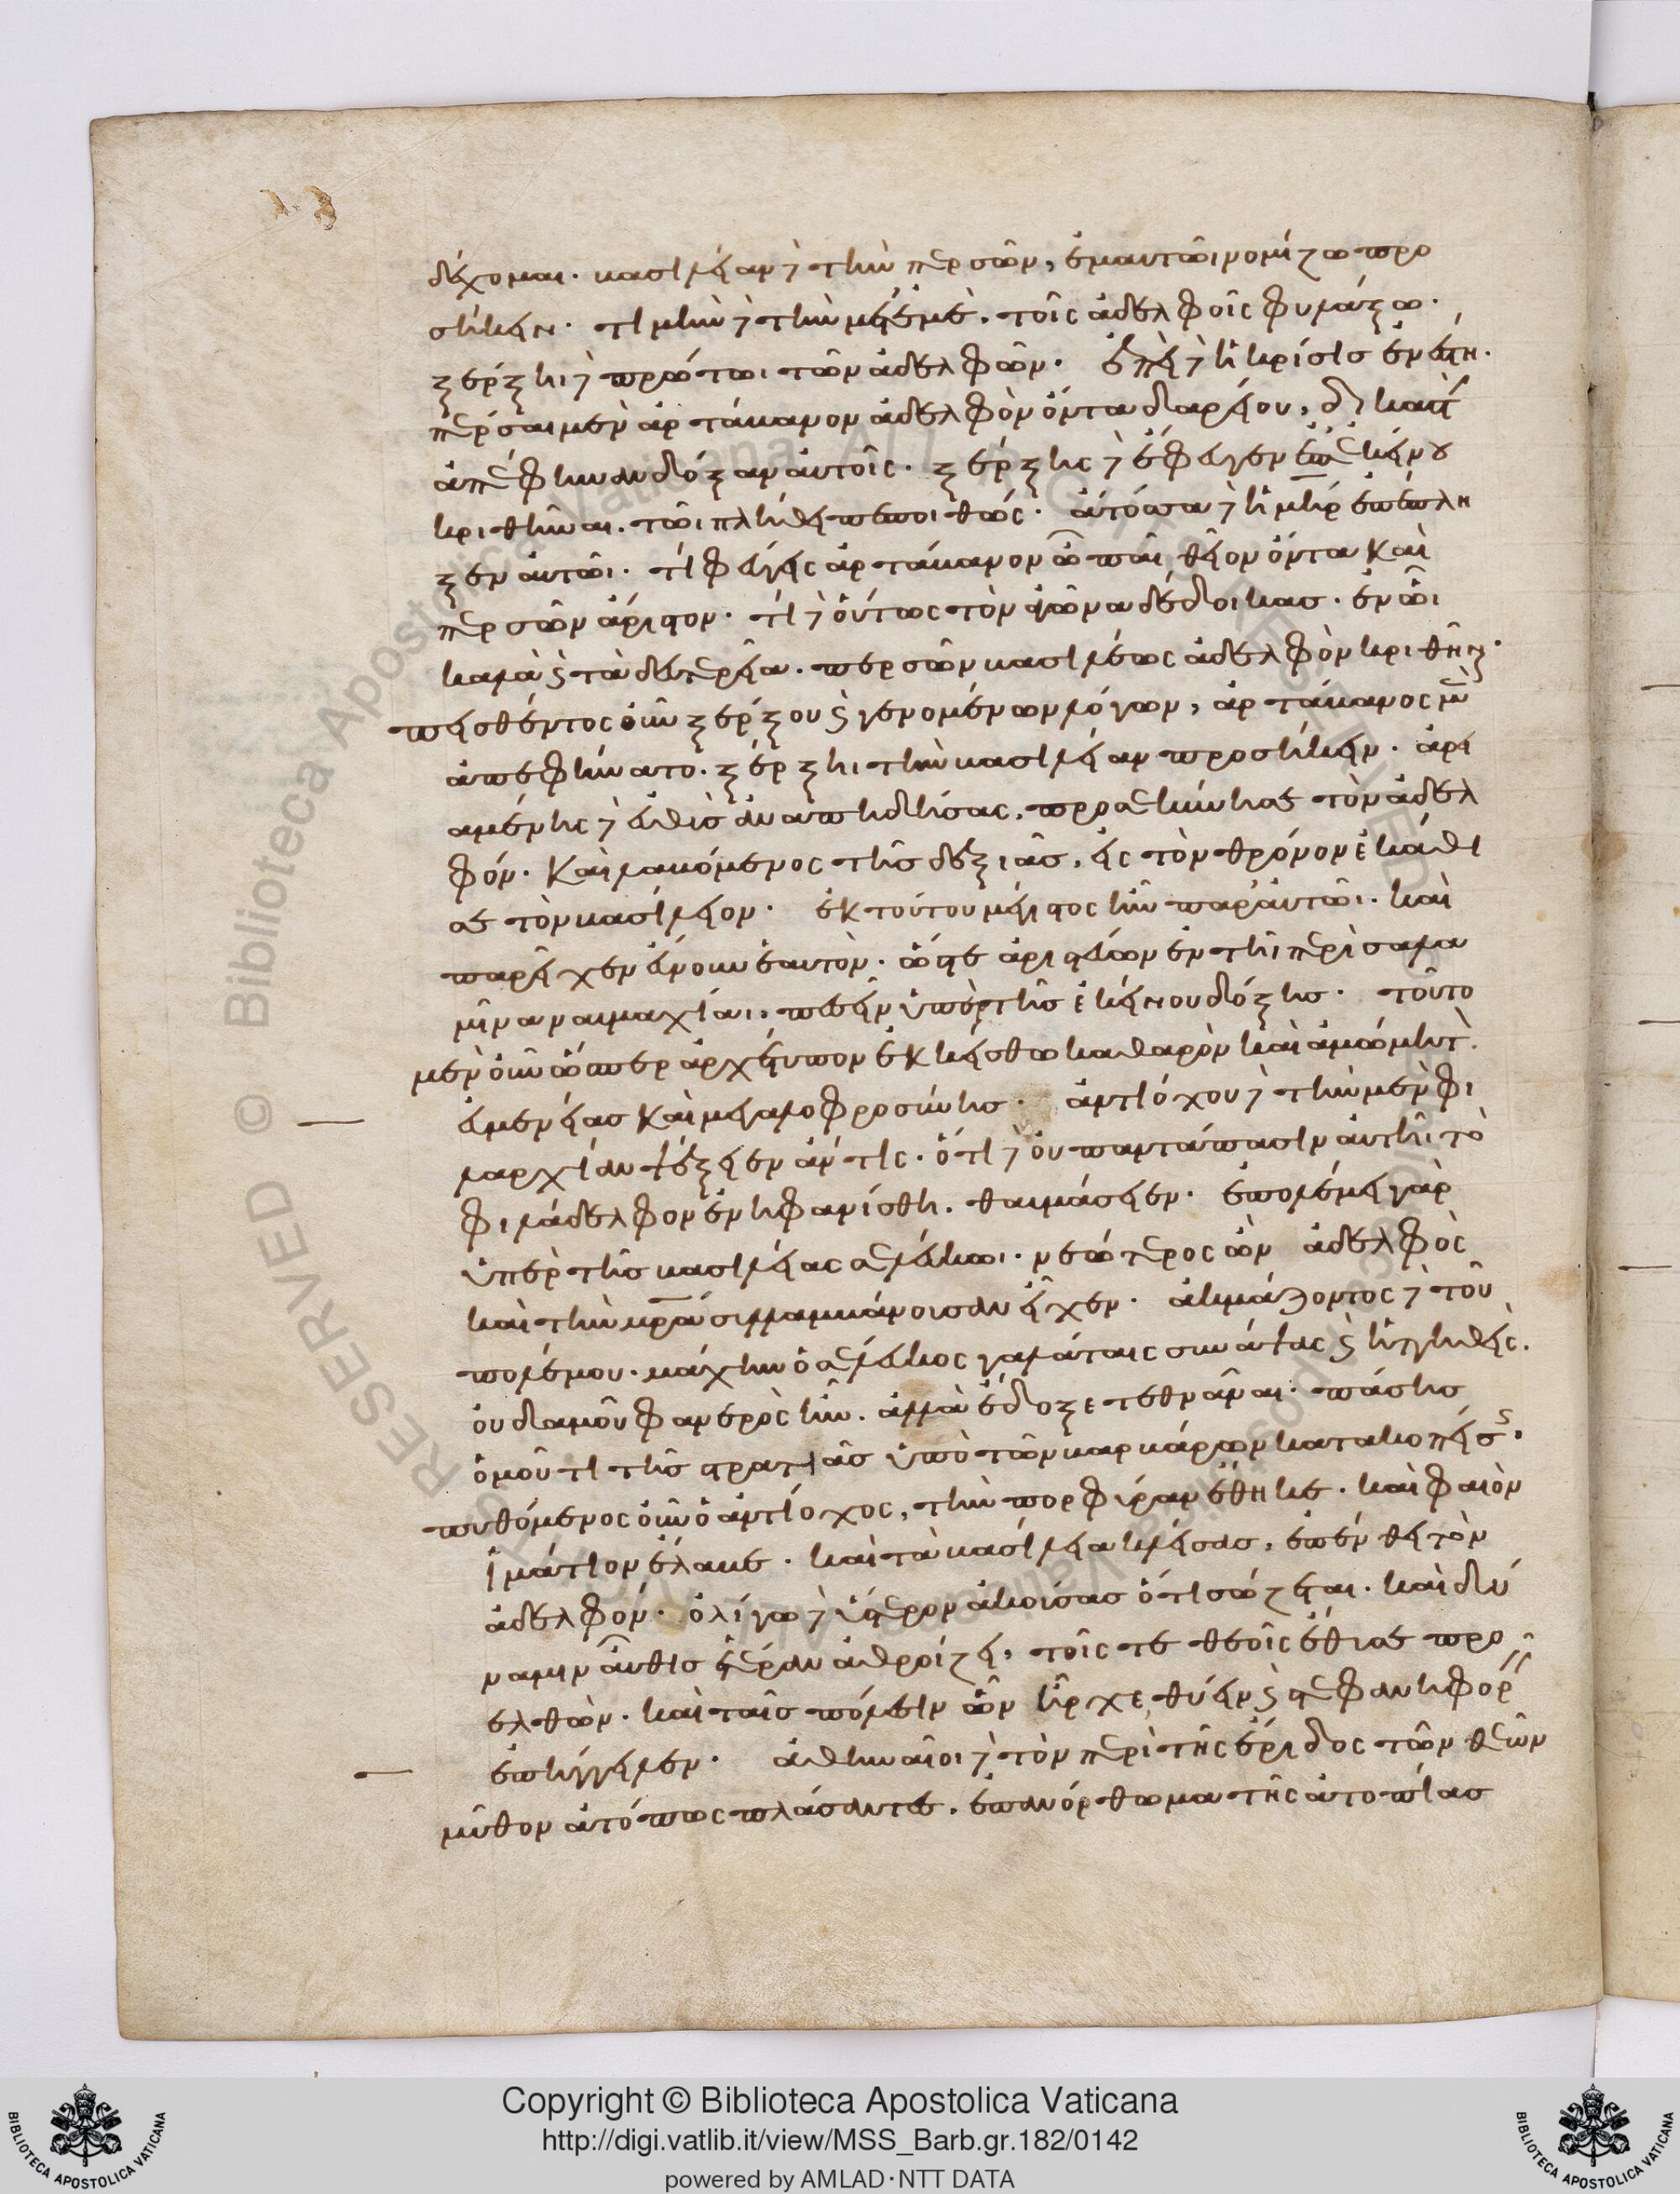 δέχομαι. βασιλείαν δὲ τὴν περσῶν, ἐμαυτῶι νομίζω προ
σήκειν. τιμὴν δὲ τὴν μετ' ἐμὲ, τοῖς ἀδελφοῖς φυλάξω.
ξέρξηι δὲ πρώτωι τῶν ἀδελφῶν. ἐπεὶ δὲ ἡ κρίσις ἐνέστη.
πέρσαι μὲν ἀρτάβανον ἀδελφὸν ὄντα δαρείου, δικαστὴν
ἀπέφηναν δόξαν αὐτοῖς. ξέρξης δὲ ἔφευγεν ἐπ' ἐκείνου
κριθῆναι. τῶι πλήθει πεποιθώς. ἄτοσσα δὲ ἡ μήτηρ ἐπέπλη
ξεν αὐτῶι. τί φεύγεις ἀρτάβανον ὦ παῖ θεῖον ὄντα καὶ
περσῶν ἄριστον. τί δὲ οὕτως τὸν ἀγῶνα δέδοικας. ἐν ὧι
καλὰ καὶ τὰ δευτερεῖα. περσῶν βασιλέως ἀδελφὸν κριθῆναι.
πεισθέντος οὖν ξέρξου καὶ γενομένων λόγων, ἀρτάβανος μὲν
ἀπεφήνατο. ξέρξηι τὴν βασιλείαν προσήκειν. ἀρι
αμένης δὲ εὐθὺς ἀναπηδήσας, προσεκύνησε τὸν ἀδελ
φόν. καὶ λαβόμενος τῆς δεξιᾶς, εἰς τὸν θρόνον ἐκάθι
σε τὸν βασίλειον. ἐκ τούτου μέγιστος ἦν παρ' αὐτῶι. καὶ
παρεῖχεν εὔνουν ἑαυτὸν. ὥστε ἀριστεύων ἐν τῆι περὶ σαλα
μῖνα ναυμαχίαι, πεσεῖν ὑπὲρ τῆς ἐκείνου δόξης. τοῦτο
μὲν οὖν ὥσπερ ἀρχέτυπον ἐκκείσθω καθαρὸν καὶ ἀμώμητον.
εὐμενείας καὶ μεγαλοφροσύνης. ἀντιόχου δὲ τὴν μὲν φι
λαρχίαν ψέξειεν ἄν τις. ὅτι δὲ οὐ παντάπασιν αὐτῆι τὸ
φιλάδελφον ἐνηφανίσθη. θαυμάσειεν. ἐπολέμει γὰρ
ὑπὲρ τῆς βασιλείας σελεύκωι. νεώτερος ὢν ἀδελφὸς
καὶ τὴν μητέρα συλλαμβάνουσαν εἶχεν. ἀκμάζοντος δὲ τοῦ
πολέμου. μάχην ὁ σέλευκος γαλάταις συνάψας καὶ ἡττηθεὶς.
οὐδαμοῦ φανερὸς ἦν. ἀλλὰ ἔδοξε τεθνᾶναι. πάσης
ὁμοῦ τι τῆς στρατιᾶς ὑπὸ τῶν βαρβάρων κατακοπείσης.
πυθόμενος οὖν ὁ ἀντίοχος, τὴν πορφύραν ἔθηκε. καὶ φαιὸν
ἱμάτιον ἔλαβε. καὶ τὰ βασίλεια κλείσας, ἐπένθει τὸν
ἀδελφόν. ὀλίγω δὲ ὕστερον ἀκούσας ὅτι σώζεται. καὶ δύ
ναμιν αὖθις ἑτέραν ἀθροίζει, τοῖς τε θεοῖς ἔθυσε προ
ελθὼν. καὶ ταῖς πόλεσιν ὧν ἦρχε θύειν καὶ στεφανηφορεῖν
ἐπήγγειλεν. ἀθηναῖοι δὲ τὸν περὶ τῆς ἔριδος τῶν θεῶν
μῦθον ἀτόπως πλάσαντες, ἐπανόρθωμα τῆς ἀτοπίας
Copyright © Biblioteca Apostolica Vaticana
http://digi.vatlib.it/view/MSS_Barb.gr.182/0142
powered by AMLAD·NTT DATA